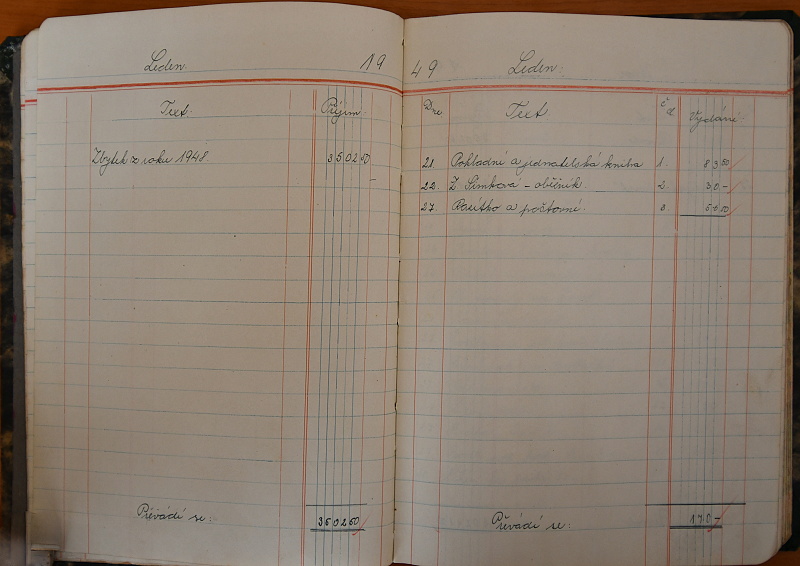 Leden. 19
Text. Příjem:
Zbytek z roku 1948. 3502 50
Převádí se: 3502 50
49 Leden:
Dne Text. č. d. Vydání:
21. Pokladní a jednatelská kniha 1. 83 50
22. Z Šimková - oběžník 2. 30 -
27. Razítko a poštovné. 3. 56 50
Převádí se: 170 -